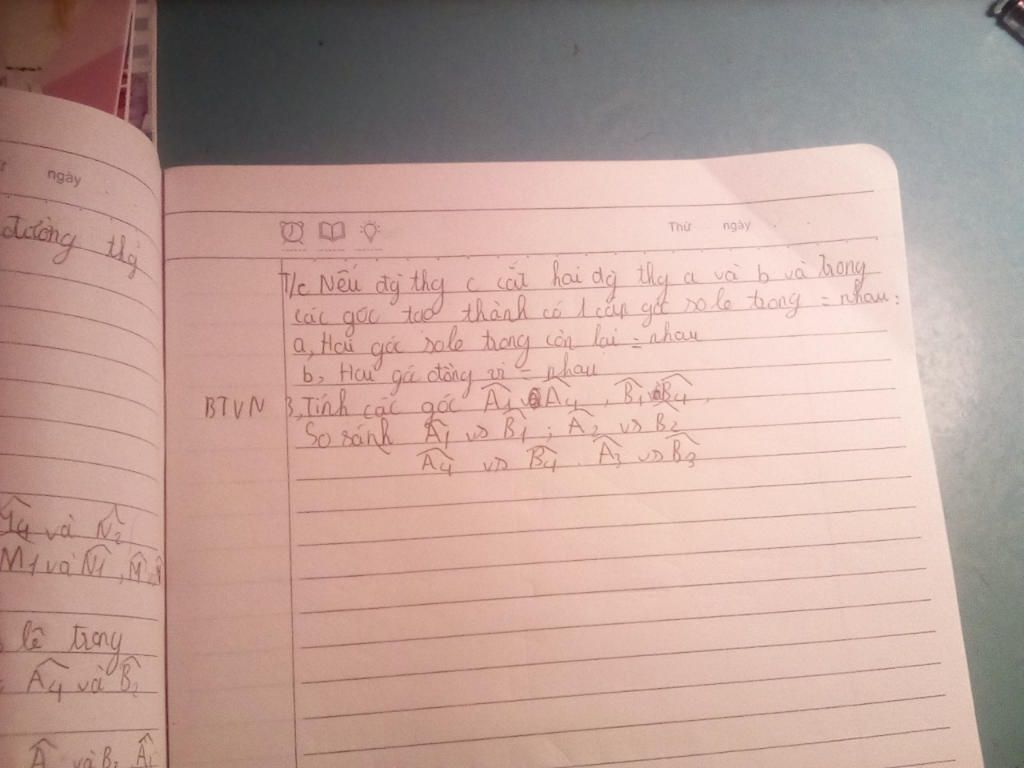 ngày
đường thg
M4 và N2
M1 và N1, M
lê trong
A4 và B2
A và B2 A1
Thứ ngày
T/c Nếu đg thg c cắt hai đg thg a và b và trong
các góc tạo thành có 1 cặp góc so le trong = nhau:
a, Hai góc so le trong còn lại = nhau
b, Hai góc đồng vị = nhau
BTVN 3, Tính các góc A1 và A4, B1 và B4,
So sánh A1 vs B1; A2 vs B2
A4 vs B4. A3 vs B3